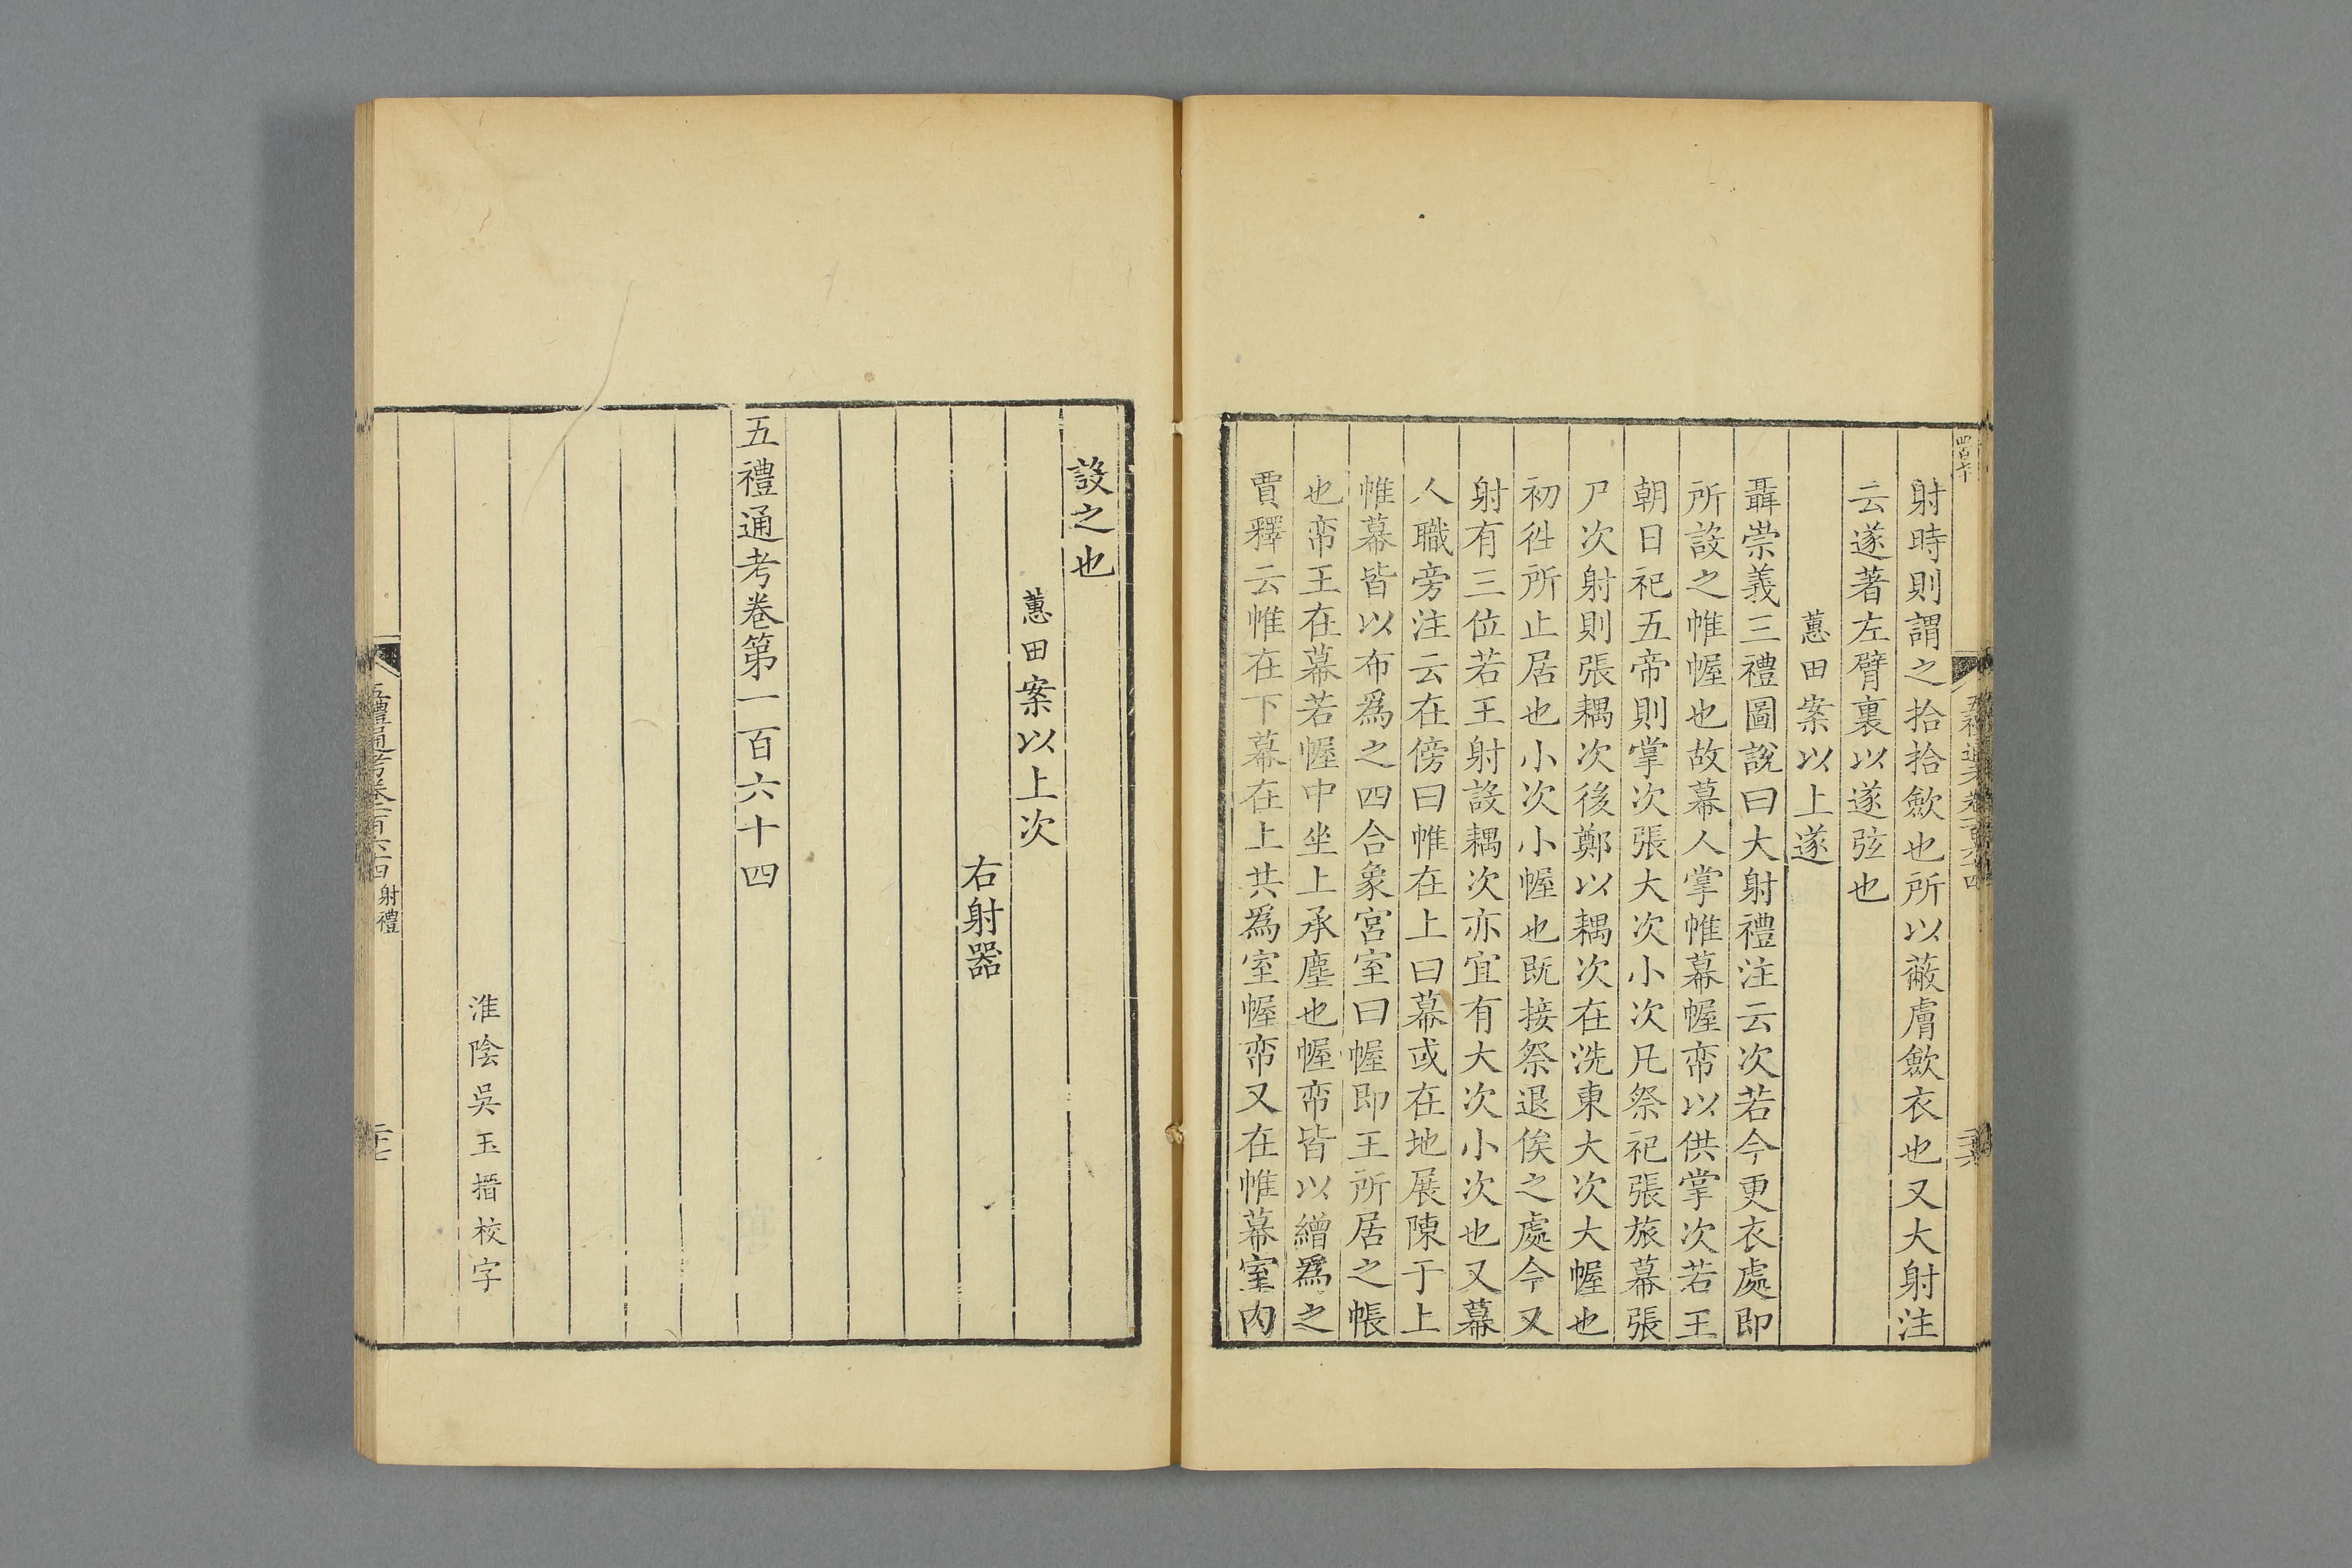 射時則謂之拾拾歛也所以蔽膚歛衣也又大射注
云遂著左臂裏以遂弦也
蕙田案以上遂
聶崇義三禮圖說曰大射禮注云次若今更衣處即
所設之帷幄也故幕人掌帷幕幄帟以供掌次若王
朝日祀五帝則掌次張大次小次凡祭祀張旅幕張
尸次射則張耦次後鄭以耦次在洗東大次大幄也
初徃所止居也小次小幄也既接祭退俟之處今又
射有三位若王射設耦次亦宜有大次小次也又幕
人職旁注云在傍曰帷在上曰幕或在地展陳于上
帷幕皆以布爲之四合象宮室曰幄即王所居之帳
也帟王在幕若幄中坐上承塵也幄帟皆以繒爲之
賈釋云帷在下幕在上共爲室幄帟又在帷幕室内
設之也
蕙田案以上次
右射器
五禮通考卷第一百六十四
淮陰吳玉搢校字
五禮通考卷一百六十四 射禮
二十七